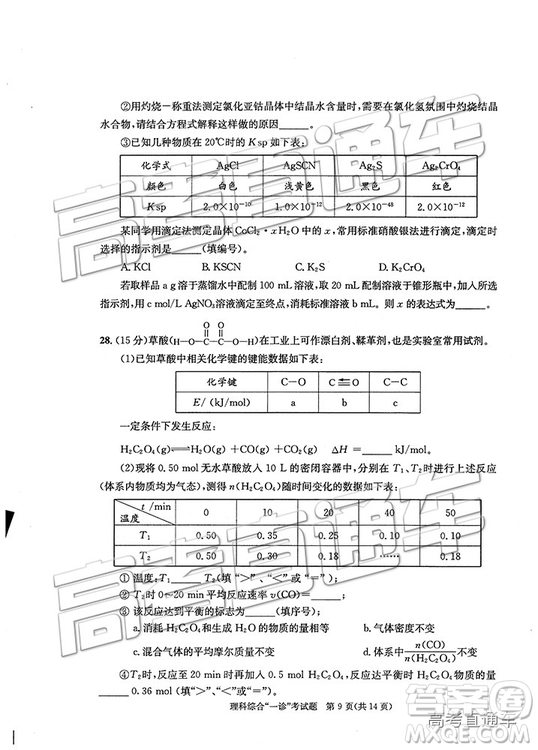 ②用灼烧一称重法测定氯化亚钴晶体中结晶水含量时,需要在氯化氢氛围中灼烧结晶
水合物,请结合方程式解释这样做的原因______。
③已知几种物质在20℃时的Ksp如下表:
化学式 AgCl AgSCN Ag₂S Ag₂CrO₄
颜色 白色 浅黄色 黑色 红色
Ksp 2.0×10⁻¹⁰ 1.0×10⁻¹² 2.0×10⁻⁴⁸ 2.0×10⁻¹²
某同学用滴定法测定晶体CoCl₂·xH₂O中的x,常用标准硝酸银法进行滴定,滴定时
选择的指示剂是______(填编号)。
A. KCl B. KSCN C. K₂S D. K₂CrO₄
若取样品a g溶于蒸馏水中配制100 mL溶液,取20 mL配制溶液于锥形瓶中,加入所选
指示剂,用c mol/L AgNO₃溶液滴定至终点,消耗标准溶液b mL。则x的表达式为______。
28.(15分)草酸(H—O—C—C—O—H)在工业上可作漂白剂、鞣革剂,也是实验室常用试剂。
O O
(1)已知草酸中相关化学键的键能数据如下表:
化学键 C—O C⇌O C—C
E/(kJ/mol) a b c
一定条件下发生反应:
H₂C₂O₄(g)⇌H₂O(g)+CO(g)+CO₂(g) ΔH=______kJ/mol。
(2)现将0.50 mol无水草酸放入10 L的密闭容器中,分别在T₁、T₂时进行上述反应
(体系内物质均为气态),测得n(H₂C₂O₄)随时间变化的数据如下表:
t/min 温度 0 10 20 40 50
T₁ 0.50 0.35 0.25 0.10 0.10
T₂ 0.50 0.30 0.18 …… 0.18
①温度:T₁______T₂(填“>”、“<”或“=”);
②T₁时0~20 min平均反应速率v(CO)=______;
③该反应达到平衡的标志为______(填序号);
a.消耗H₂C₂O₄和生成H₂O的物质的量相等 b.气体密度不变
c.混合气体的平均摩尔质量不变 d.体系中n(CO)/n(H₂C₂O₄)不变
④T₂时,反应至20 min时再加入0.5 mol H₂C₂O₄,达到平衡时n(H₂C₂O₄)的物质的量
______0.36 mol(填“>”、“<”或“=”)。
理科综合“一诊”考试题 第9页(共14页)
高考直通车
答案圈
高考直通车